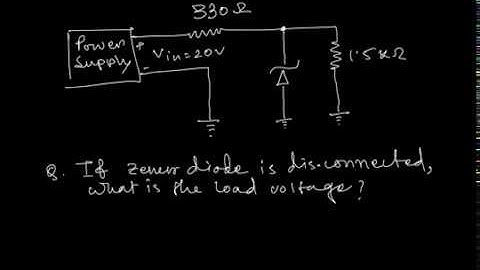 330Ω
Power
Supply
+
Vin=20V
-
1.5kΩ
Q. If zener diode is disconnected,
what is the load voltage?